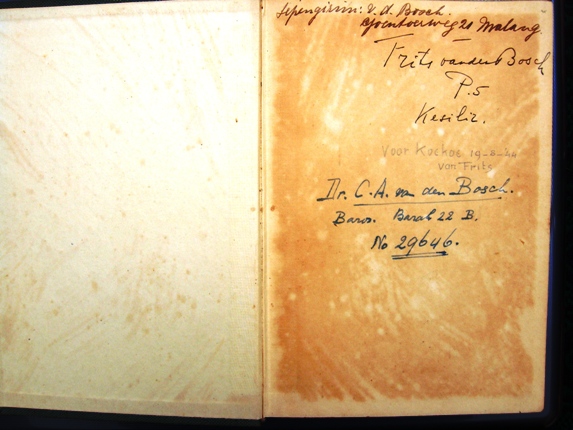 Sipengirim: v. d. Bosch.
Goentoerweg 21 Malang.
Frits van den Bosch
P.5
Kesilir.
Voor Kockoe 19-8-44
von Frits
Dr. C. A. van den Bosch.
Baros. Barak 22 B.
No 29646.